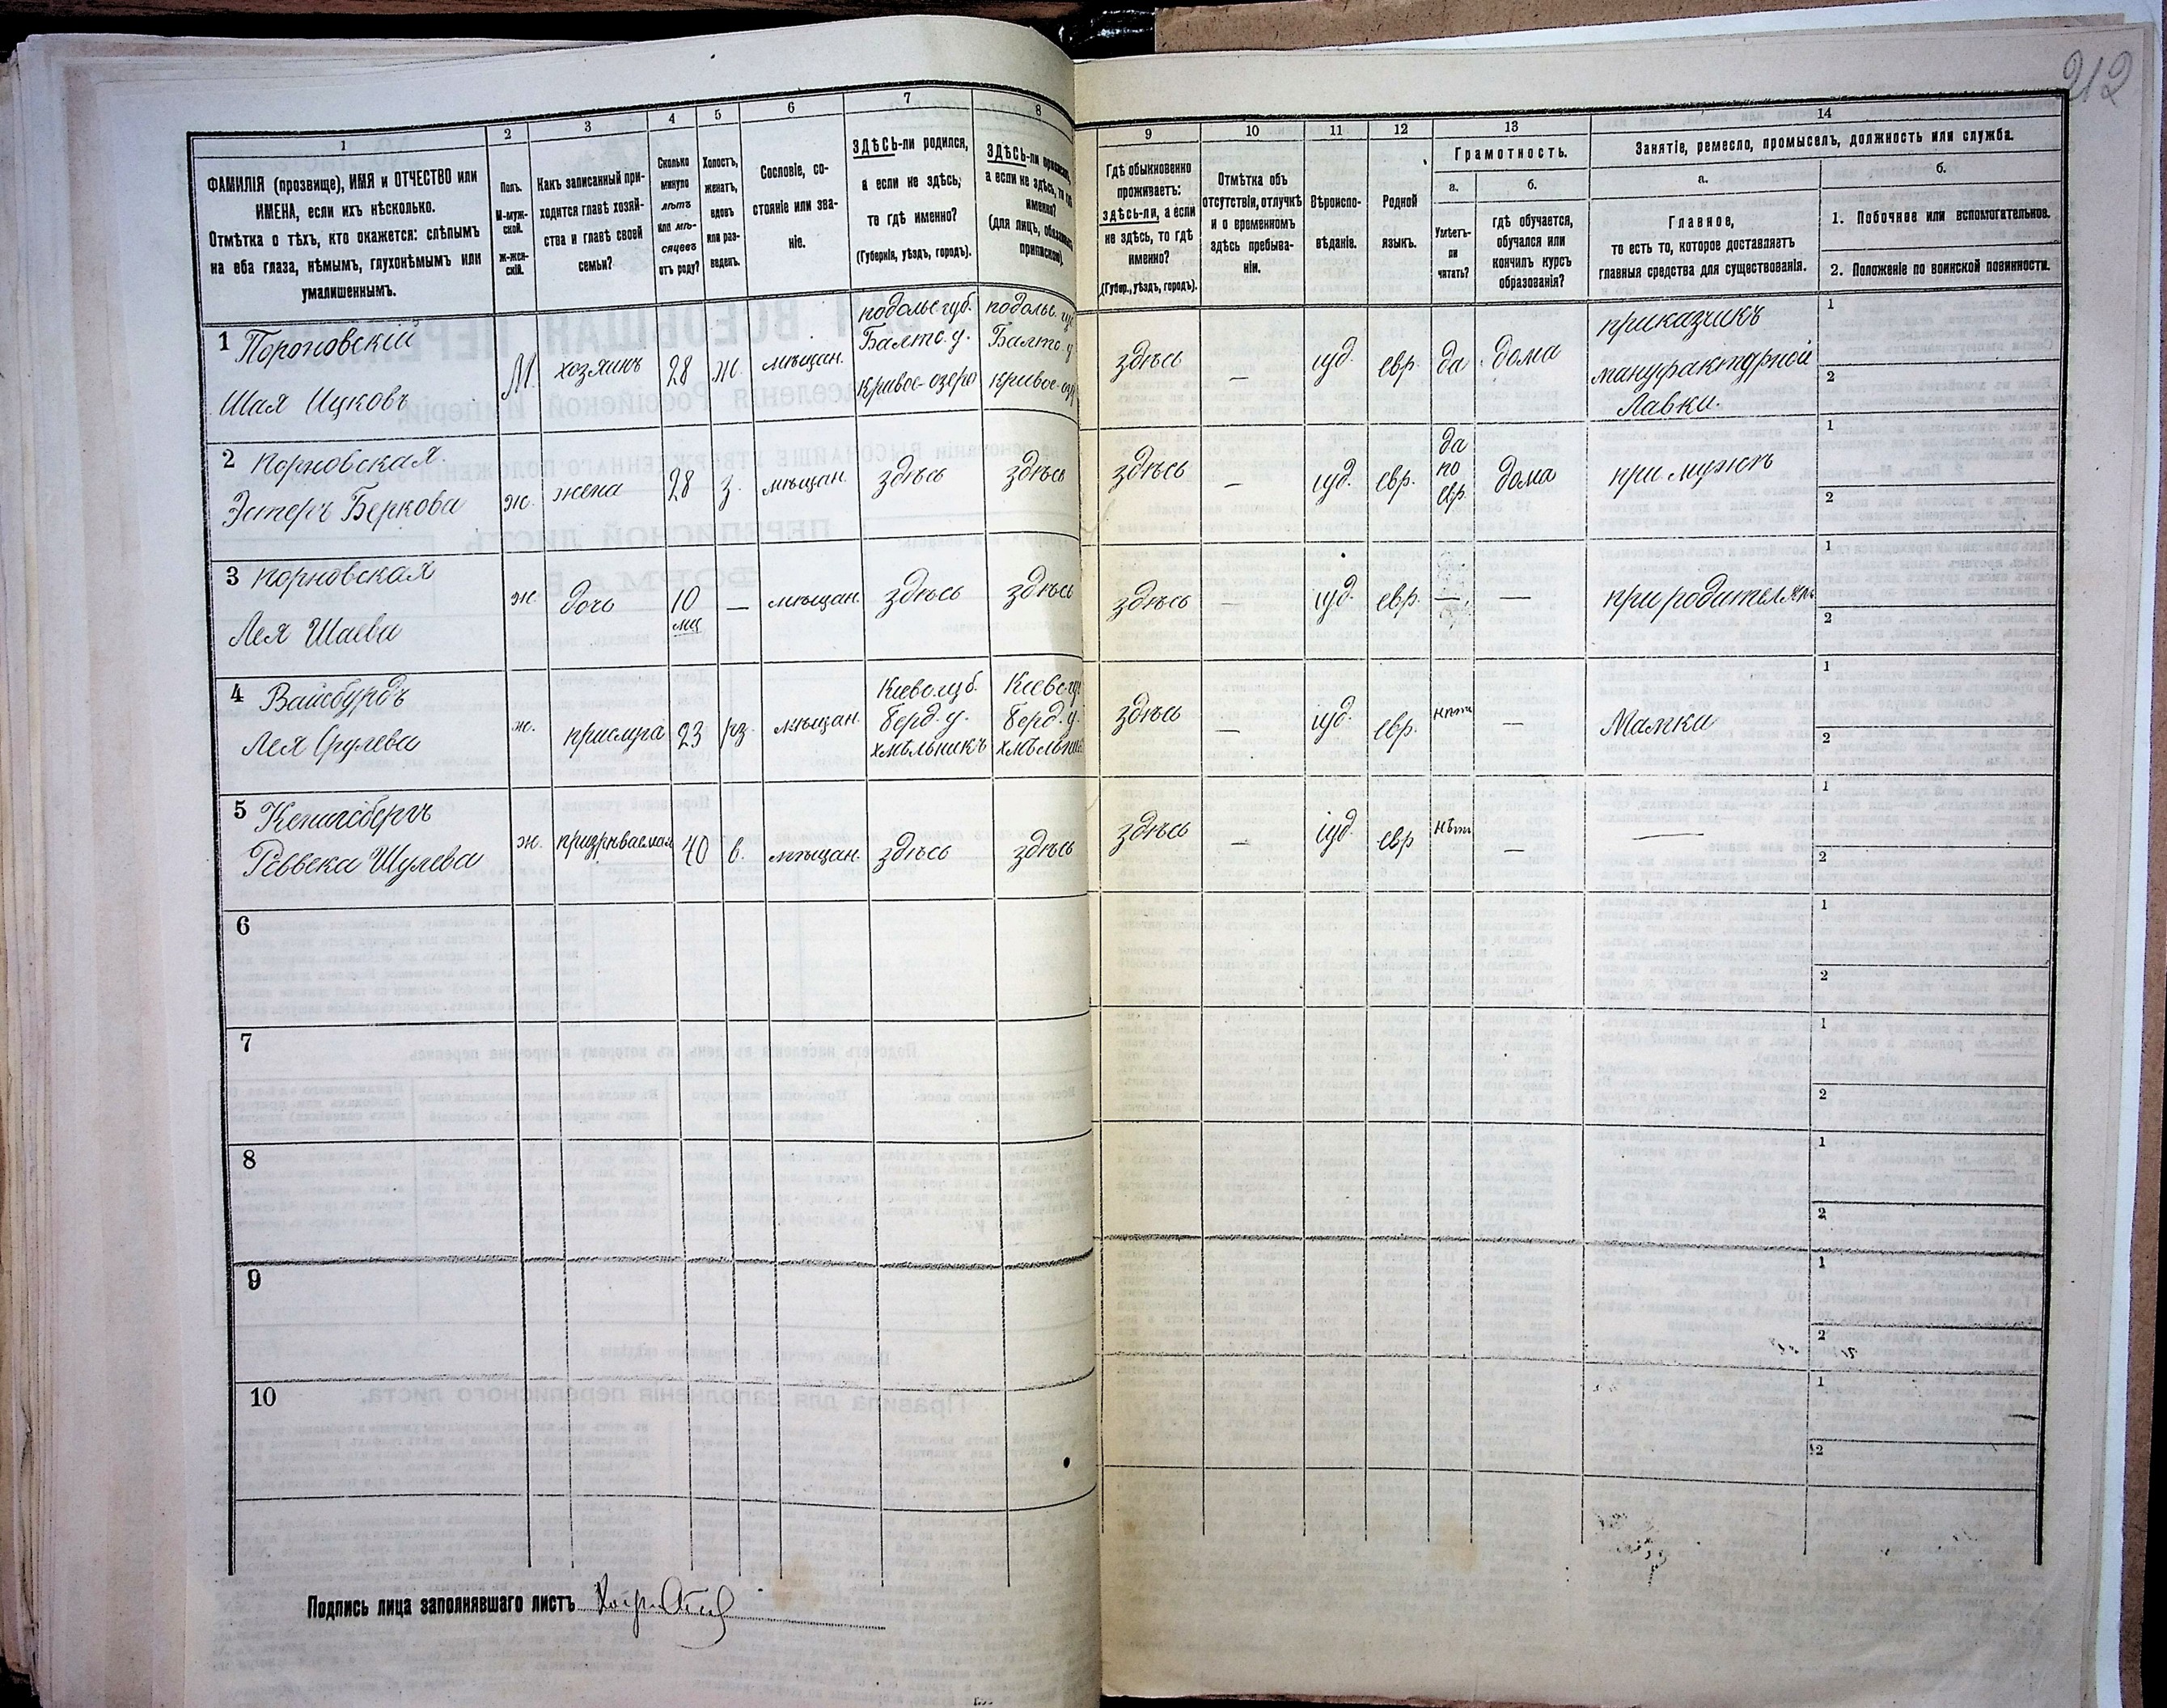 212
1
ФАМИЛІЯ (прозвище), ИМЯ и ОТЧЕСТВО или
ИМЕНА, если ихъ нѣсколько.
Отмѣтка о тѣхъ, кто окажется: слѣпымъ
на оба глаза, нѣмымъ, глухонѣмымъ или
умалишеннымъ.
2
Полъ.
М-муж-
ской.
ж-жен-
скій.
3
Какъ записанный при-
ходится главѣ хозяй-
ства и главѣ своей
семьи?
4
Сколько
минуло
лѣтъ
или мѣ-
сяцевъ
отъ роду?
5
Холостъ,
женатъ,
вдовъ
или раз-
веденъ.
6
Сословіе, со-
стояніе или зва-
ніе.
7
ЗДѢСЬ-ли родился,
а если не здѣсь,
то гдѣ именно?
(Губернія, уѣздъ, городъ).
8
ЗДѢСЬ-ли
а если не здѣсь, то
именно?
(для лицъ,
припискою).
9
Гдѣ обыкновенно
проживаетъ:
здѣсь-ли, а если
не здѣсь, то гдѣ
именно?
(Губер., уѣздъ, городъ).
10
Отмѣтка объ
отсутствіи, отлучкѣ
и о временномъ
здѣсь пребыва-
ніи.
11
Вѣроиспо-
вѣданіе.
12
Родной
языкъ.
13
Грамотность.
а.
Умѣетъ-
ли
читать?
б.
гдѣ обучается,
обучался или
кончилъ курсъ
образованія?
14
Занятіе, ремесло, промыселъ, должность или служба.
а.
Главное,
то есть то, которое доставляетъ
главныя средства для существованія.
б.
1. Побочное или вспомогательное.
2. Положеніе по воинской повинности.
1
Шая Ицковъ
М.
хозяинъ
28
ж.
мѣщан.
подольс губ.
Балтс. у.
Кривое-озеро
подольс.
Балтс. у
Кривое-
здѣсь
—
іуд.
евр.
да
дома
приказчикъ
мануфактурной
Лавки.
1
2
2 Порновская
Эстеръ Беркова
ж.
жена
28
з.
мѣщан.
здѣсь
здѣсь
здѣсь
—
іуд.
евр.
да
по
евр.
дома
при мужѣ
1
2
3 Порновская
Лея Шаева
ж.
дочь
10
мц
—
мѣщан.
здѣсь
здѣсь
здѣсь
—
іуд.
евр.
—
—
при родителяхъ
1
2
4 Вайсбурдъ
Лея Срулева
ж.
прислуга
23
рз.
мѣщан.
Кіевс губ.
Берд. у.
хмѣльникъ
Кіевс
Берд. у.
здѣсь
—
іуд.
евр.
нѣтъ
—
Мамка
1
2
5 Кенигсбергъ
Реввека Шулева
ж.
призрѣваемая
40
в.
мѣщан.
здѣсь
здѣсь
здѣсь
—
іуд.
евр
нѣтъ
—
—
1
2
6
1
2
7
1
2
8
1
2
9
1
2
10
1
2
Подпись лица заполнявшаго листъ